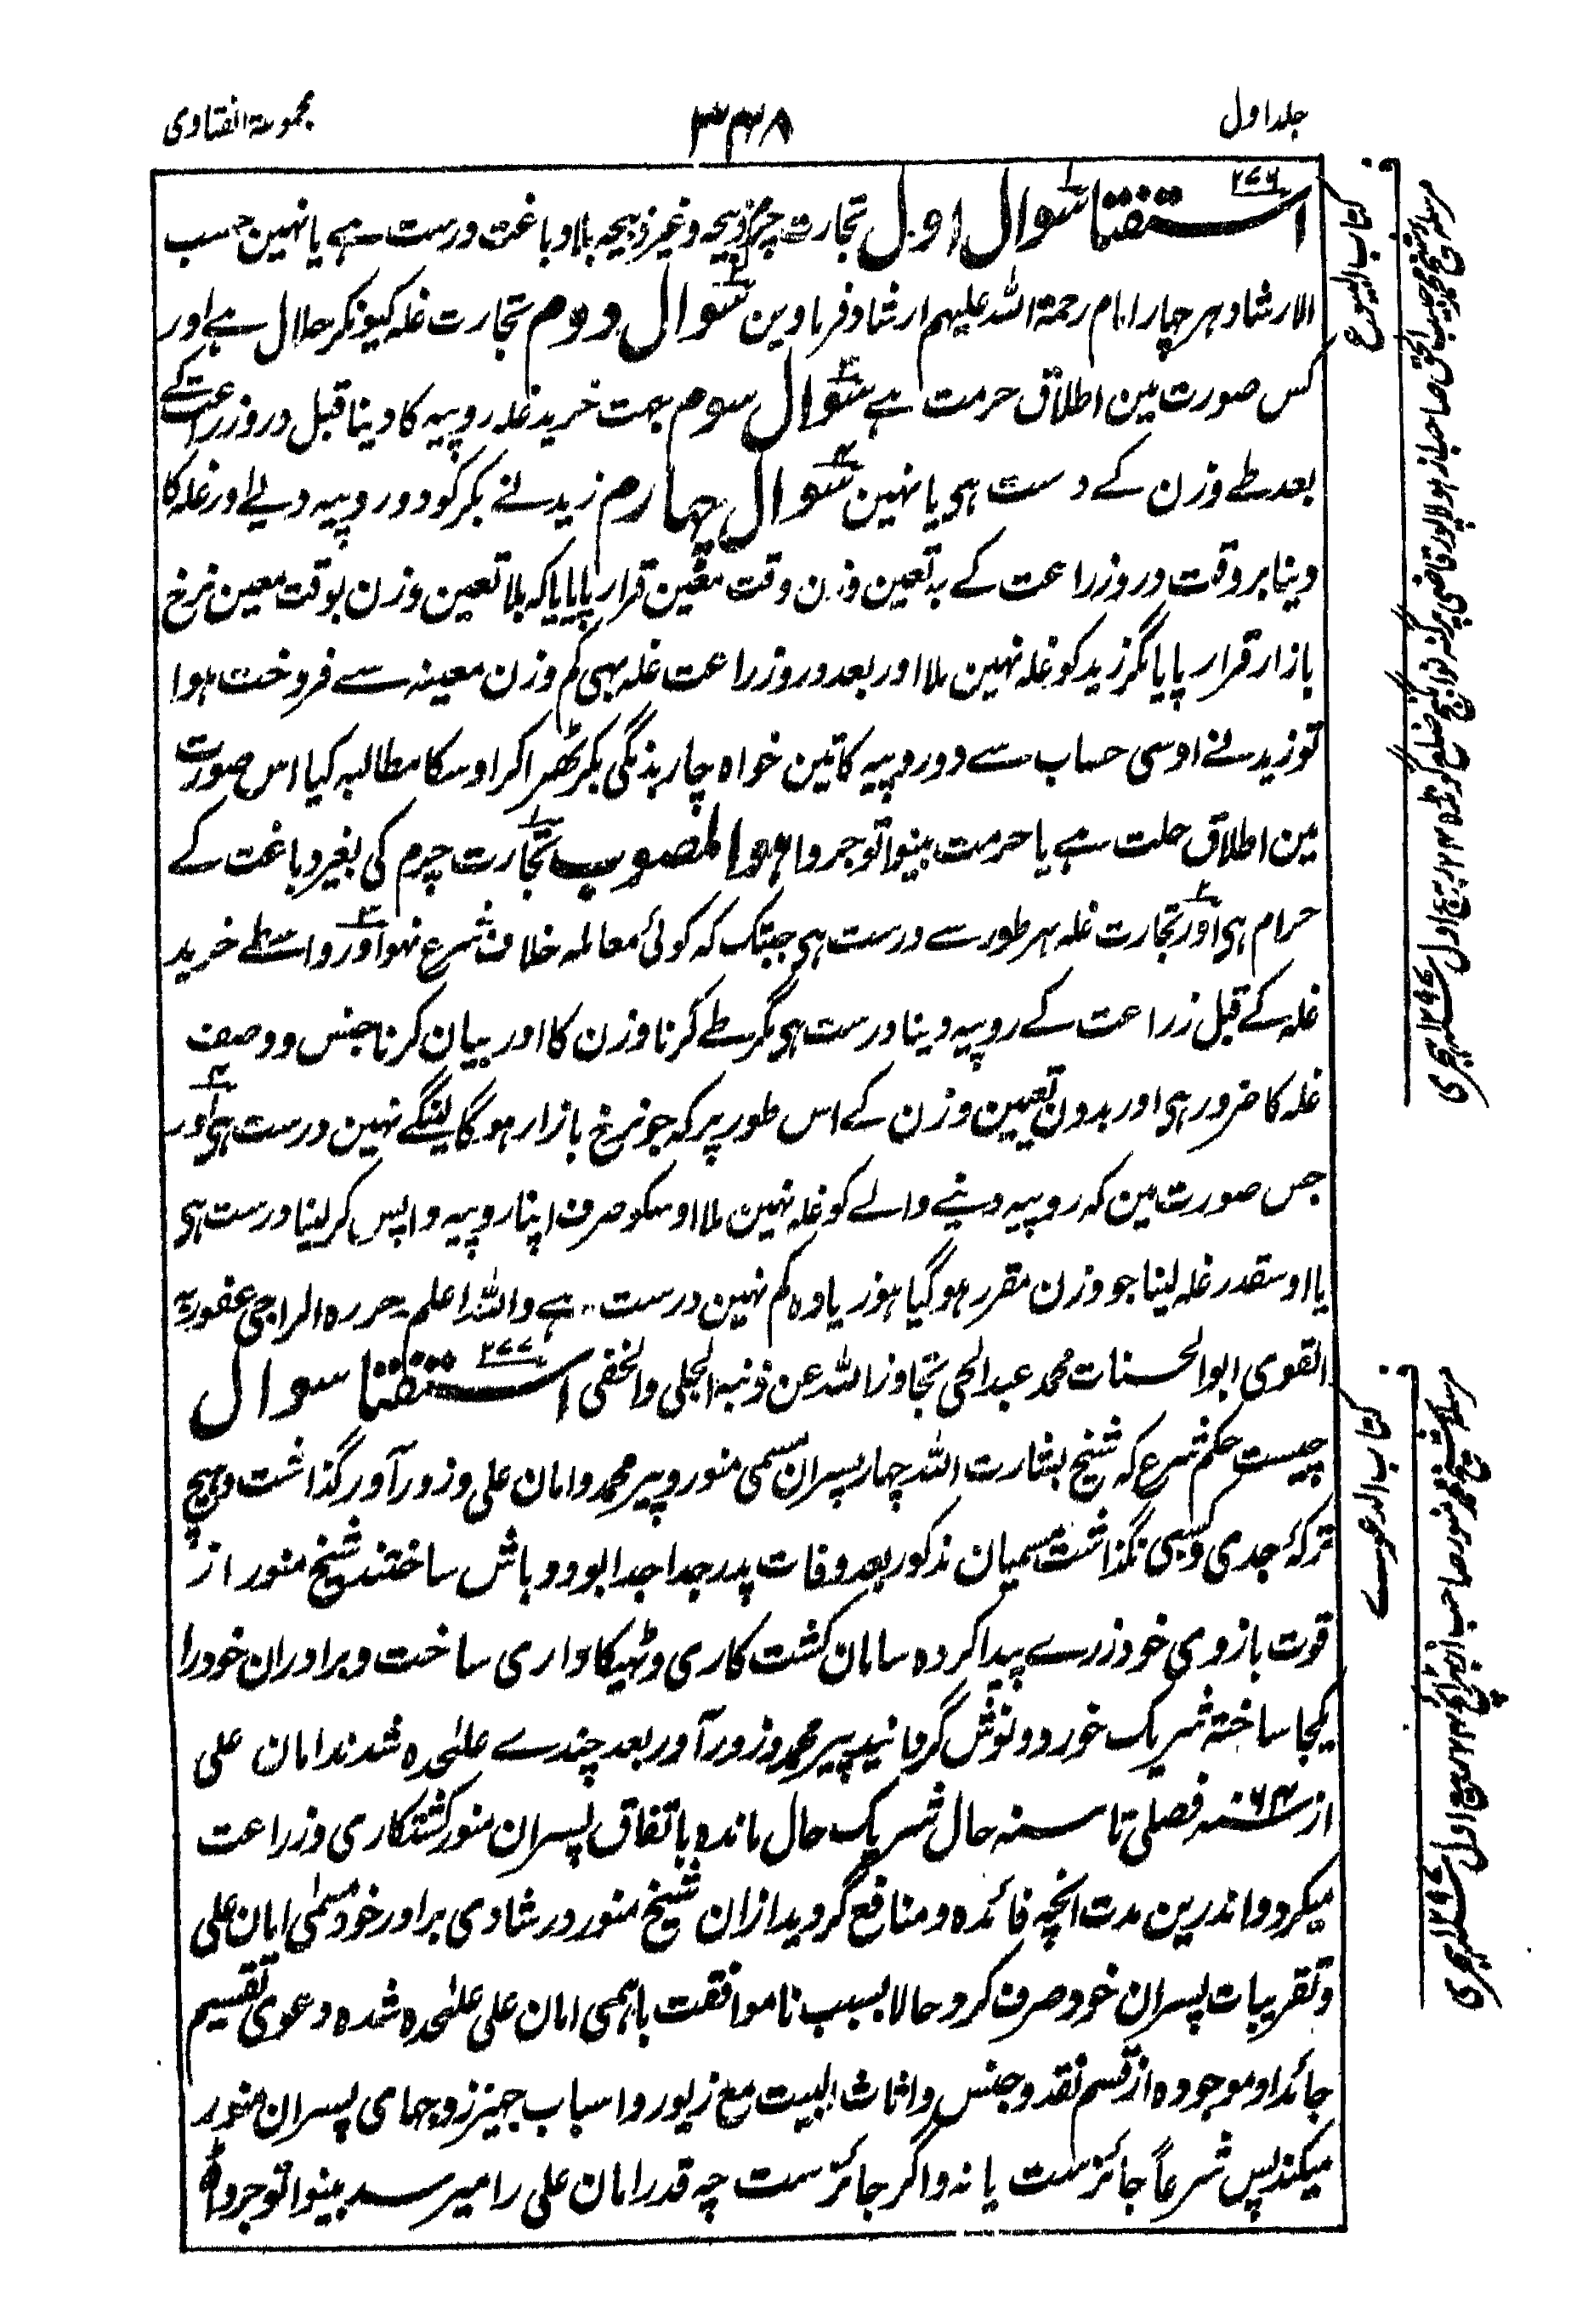 جلد اول
۳۳۸
مجموعۃ الفتاوی
۲۷۶
استفتا سوال اول تجارت چرم ذبیحہ وغیر ذبیحہ بلا دباغت درست ہے یا نہین حسب
الارشاد ہر چہار امام رحمۃ اللہ علیہم ارشاد فرماوین سوال دوم تجارت غلہ کیونکر حلال ہے اور
کس صورت مین اطلاق حرمت ہے سوال سوم بجہت خرید غلہ روپیہ کا دینا قبل درو زراعت کے
بعد طے وزن کے درست ہی یا نہین سوال چہارم زید نے بکر کو دو روپیہ دیے اور غلہ کا
دینا بر وقت درو زراعت کے بہ تعین وزن وقت معین قرار پایا یا کہ بلا تعین وزن بوقت معین نرخ
بازار قرار پایا مگر زید کو غلہ نہین ملا اور بعد درو زراعت غلہ بھی کم وزن معینہ سے فروخت ہوا
تو زید نے اوسی حساب سے دو روپیہ کا تین خواہ چار بذمگی بکر ٹھرا کر اوسکا مطالبہ کیا اس صورت
مین اطلاق حلت ہے یا حرمت بینوا توجروا ہوالمصوب تجارت چرم کی بغیر دباغت کے
حرام ہی اور تجارت غلہ ہر طور سے درست ہی جبتک کہ کوئی معاملہ خلاف شرع نہو اور واسطے خرید
غلہ کے قبل زراعت کے روپیہ دینا درست ہی مگر طے کرنا وزن کا اور بیان کرنا جنس و وصف
غلہ کا ضرور ہی اور بدون تعیین وزن کے اس طور پر کہ جو نرخ بازار ہوگا لینگے نہین درست ہی اور
جس صورت مین کہ روپیہ دینے والے کو غلہ نہین ملا اوسکو صرف اپنا روپیہ واپس کر لینا درست ہی
یا اوسقدر غلہ لینا جو وزن مقرر ہو گیا ہو زیادہ کم نہین درست ہے واللہ اعلم حررہ الراجی عفو ربہ
القوی ابو الحسنات محمد عبد الحی تجاوز اللہ عن ذنبہ الجلی والخفی ۲۷۷ استفتا سوال
چیست حکم شرع کہ شیخ بشارت اللہ چہار پسران مسمی منور و پیر محمد و امان علی و زور آور گذاشت و ہیچ
ترکۂ جدی و کسبی نگذاشت مسمیان مذکور بعد وفات پدر جدا جدا بود و باش ساختند شیخ منور از
قوت بازوی خود زرے پیدا کردہ سامان کشت کاری و ٹھیکا داری ساخت و برادران خود را
یکجا ساختہ شریک خورد و نوش گردانید پیر محمد و زور آور بعد چندے علٰحدہ شدند امان علی
از سنہ ۶۴ فصلی تا سنہ حال شریک حال ماندہ باتفاق پسران منور کشتکاری و زراعت
میکرد و اندرین مدت انچہ فائدہ و منافع گردید ازان شیخ منور در شادی برادر خود مسمٰی امان علی
و تقریبات پسران خود صرف کرد حالا بسبب ناموافقت باہمی امان علی علٰحدہ شدہ دعوی تقسیم
جائداد موجودہ از قسم نقد و جنس و اثاث البیت مع زیور و اسباب جہیز زوجہای پسران منور
میکند پس شرعاً جائزست یا نہ و اگر جائزست چہ قدر امان علی را میرسد بینوا توجروا
کتاب البیوع
کتاب الدعوے